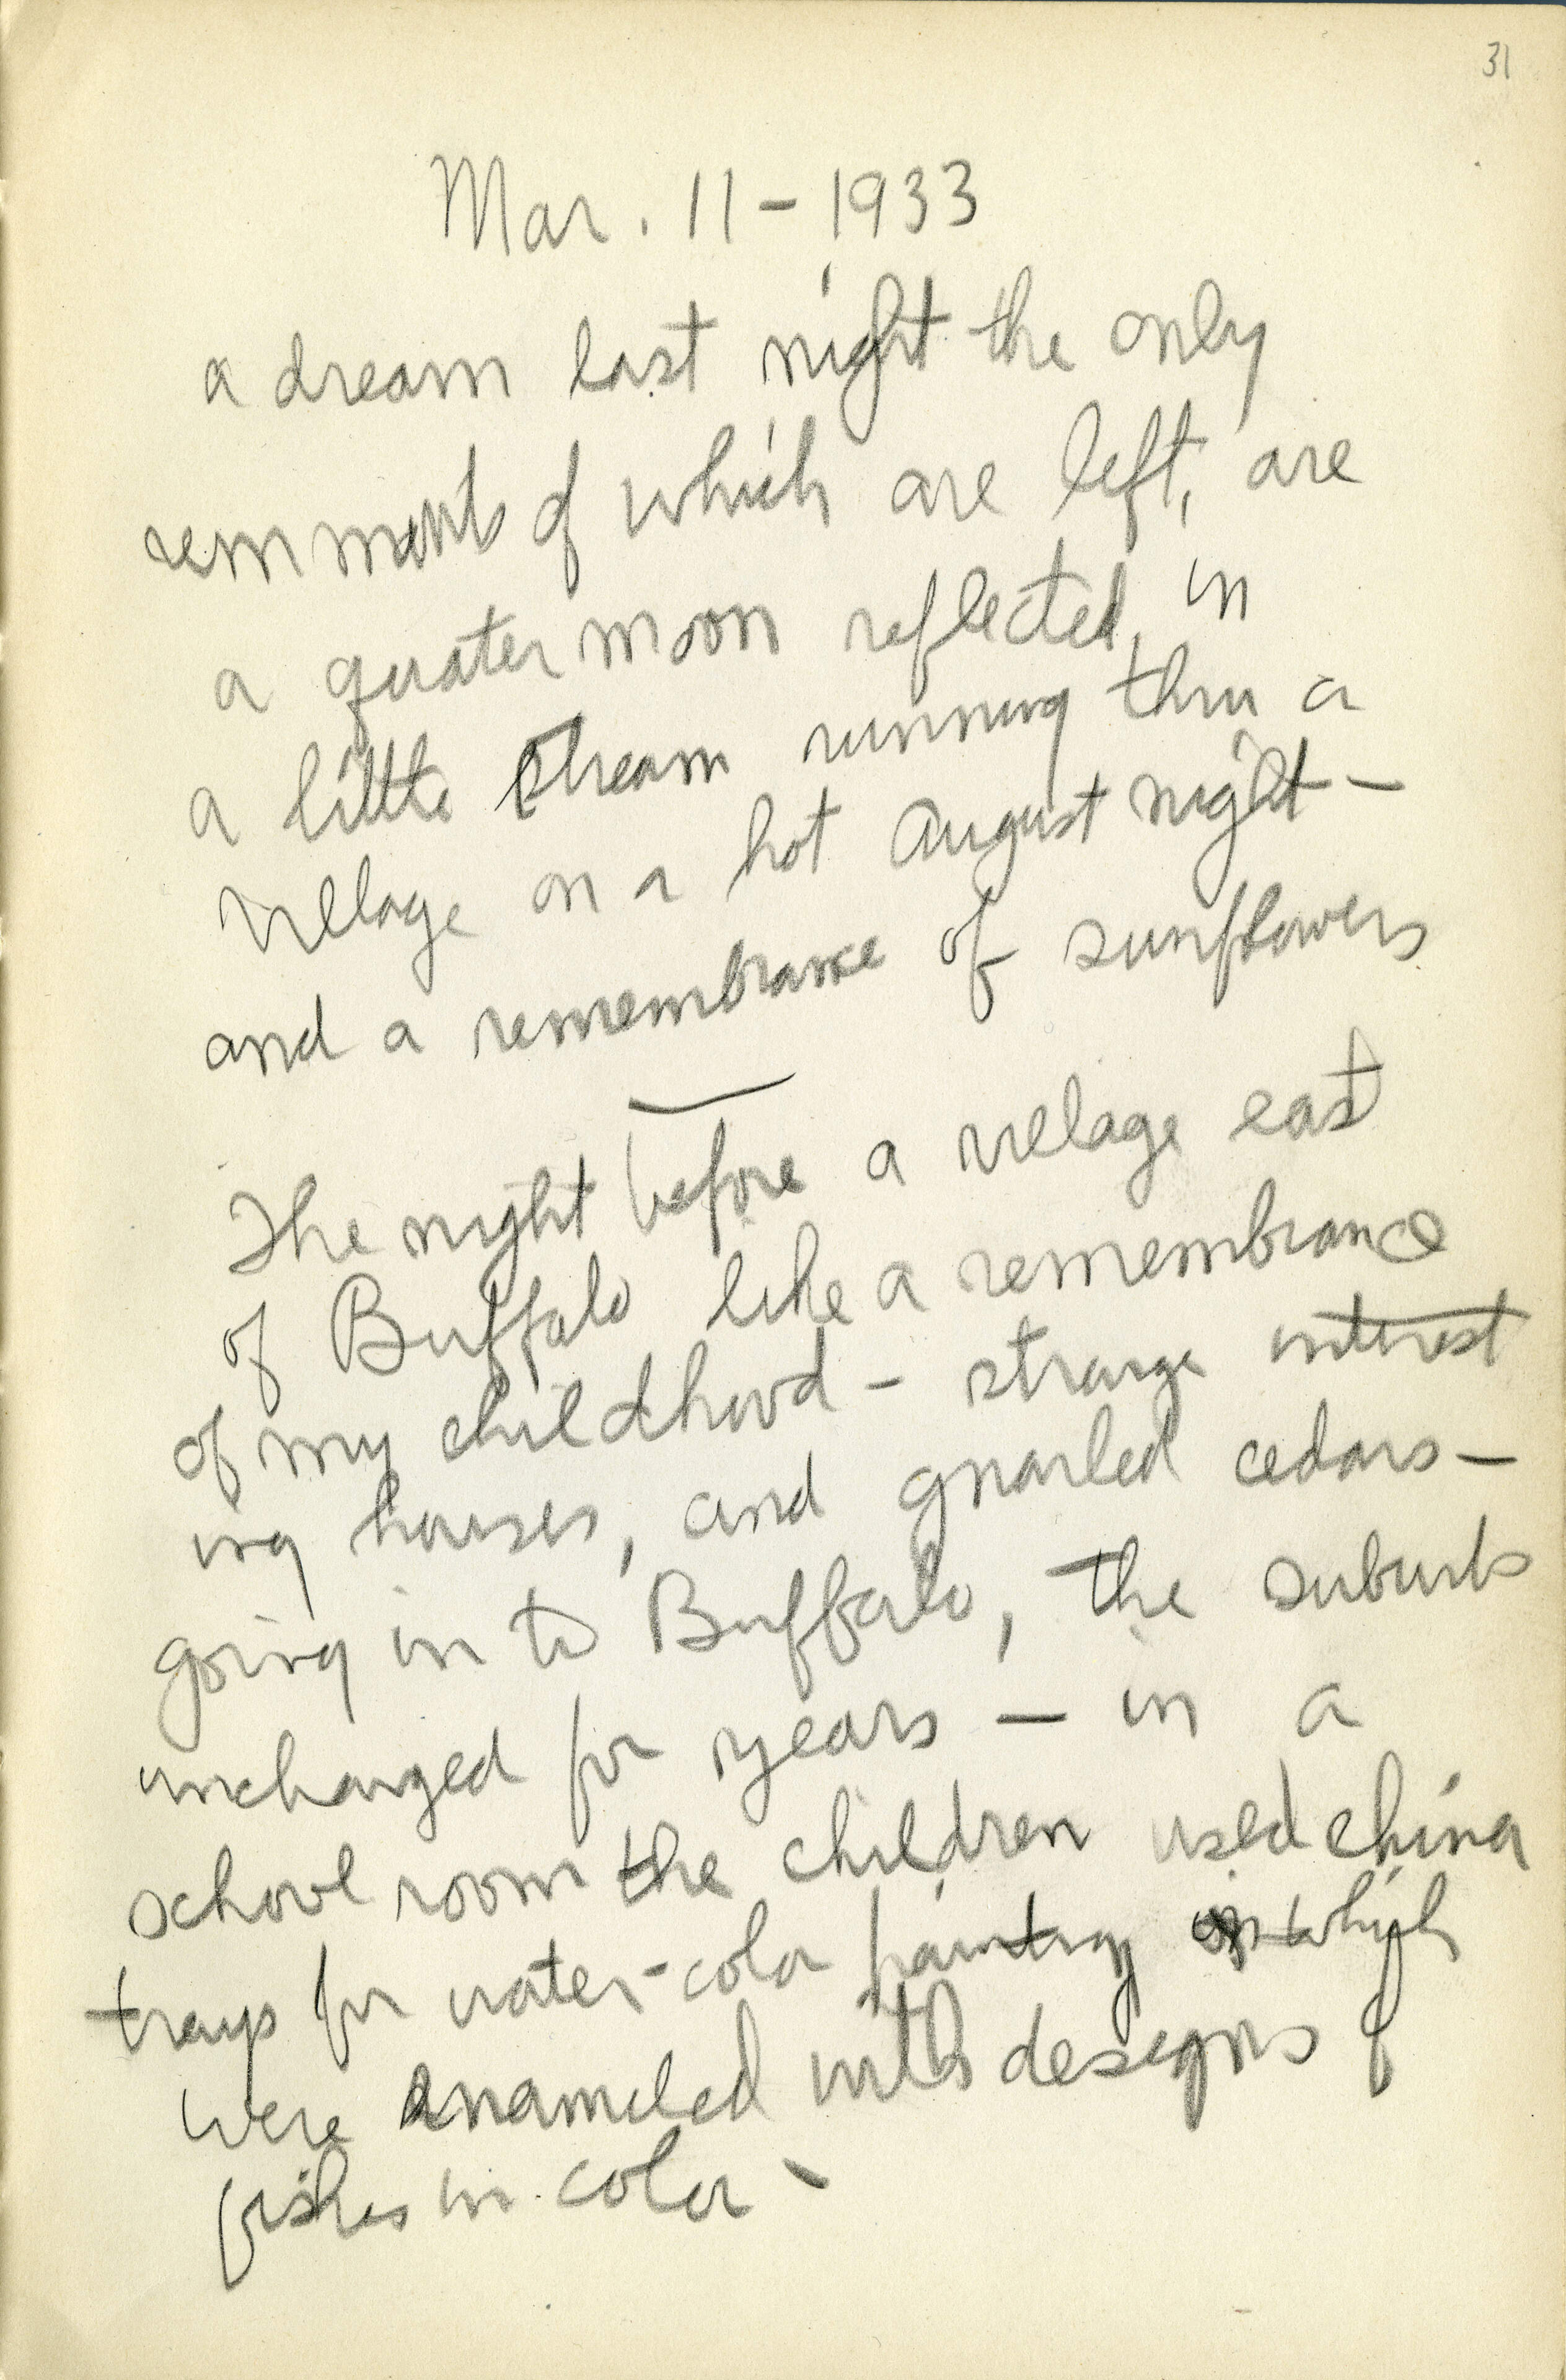 31
Mar. 11 - 1933
a dream last night the only
remnants of which are left, are
a quater moon reflected in
a little stream running thru a
village on a hot August night —
and a remembrance of sunflowers
The night before a village east
of Buffalo like a remembrance
of my childhood - strange interest
ing houses, and gnarled cedars —
going in to Buffalo, the suburbs
unchanged for years — in a
school room the children used china
trays for water-color painting which
were enameled with designs of
fishes in color -